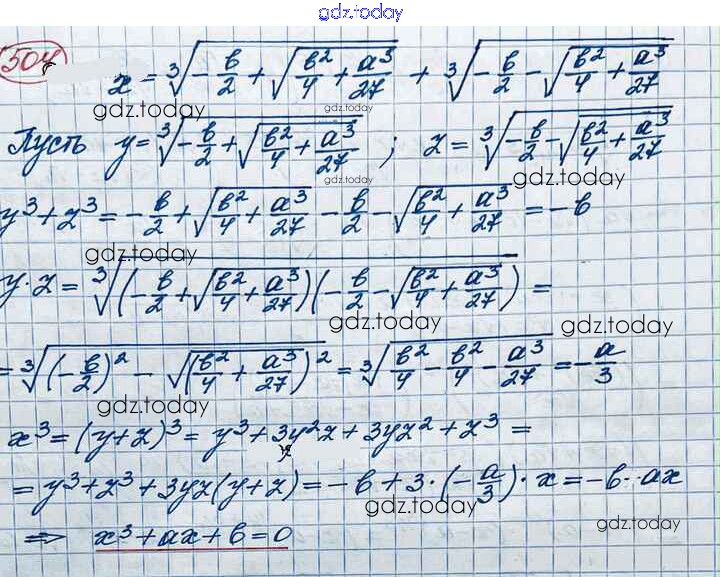 gdz.today
504
x = ∛(-b/2 + √(b²/4 + a³/27)) + ∛(-b/2 - √(b²/4 + a³/27))
gdz.today
gdz.today
Пусть y = ∛(-b/2 + √(b²/4 + a³/27)) ; z = ∛(-b/2 - √(b²/4 + a³/27))
gdz.today
gdz.today
y³ + z³ = -b/2 + √(b²/4 + a³/27) - b/2 - √(b²/4 + a³/27) = -b
gdz.today
y · z = ∛((-b/2 + √(b²/4 + a³/27))(-b/2 - √(b²/4 + a³/27))) =
gdz.today
gdz.today
= ∛((-b/2)² - √((b²/4 + a³/27)²)) = ∛(b²/4 - b²/4 - a³/27) = -a/3
gdz.today
x³ = (y+z)³ = y³ + 3y²z + 3yz² + z³ =
= y³ + z³ + 3yz(y+z) = -b + 3·(-a/3)·x = -b - ax
gdz.today
gdz.today
⇒ x³ + ax + b = 0